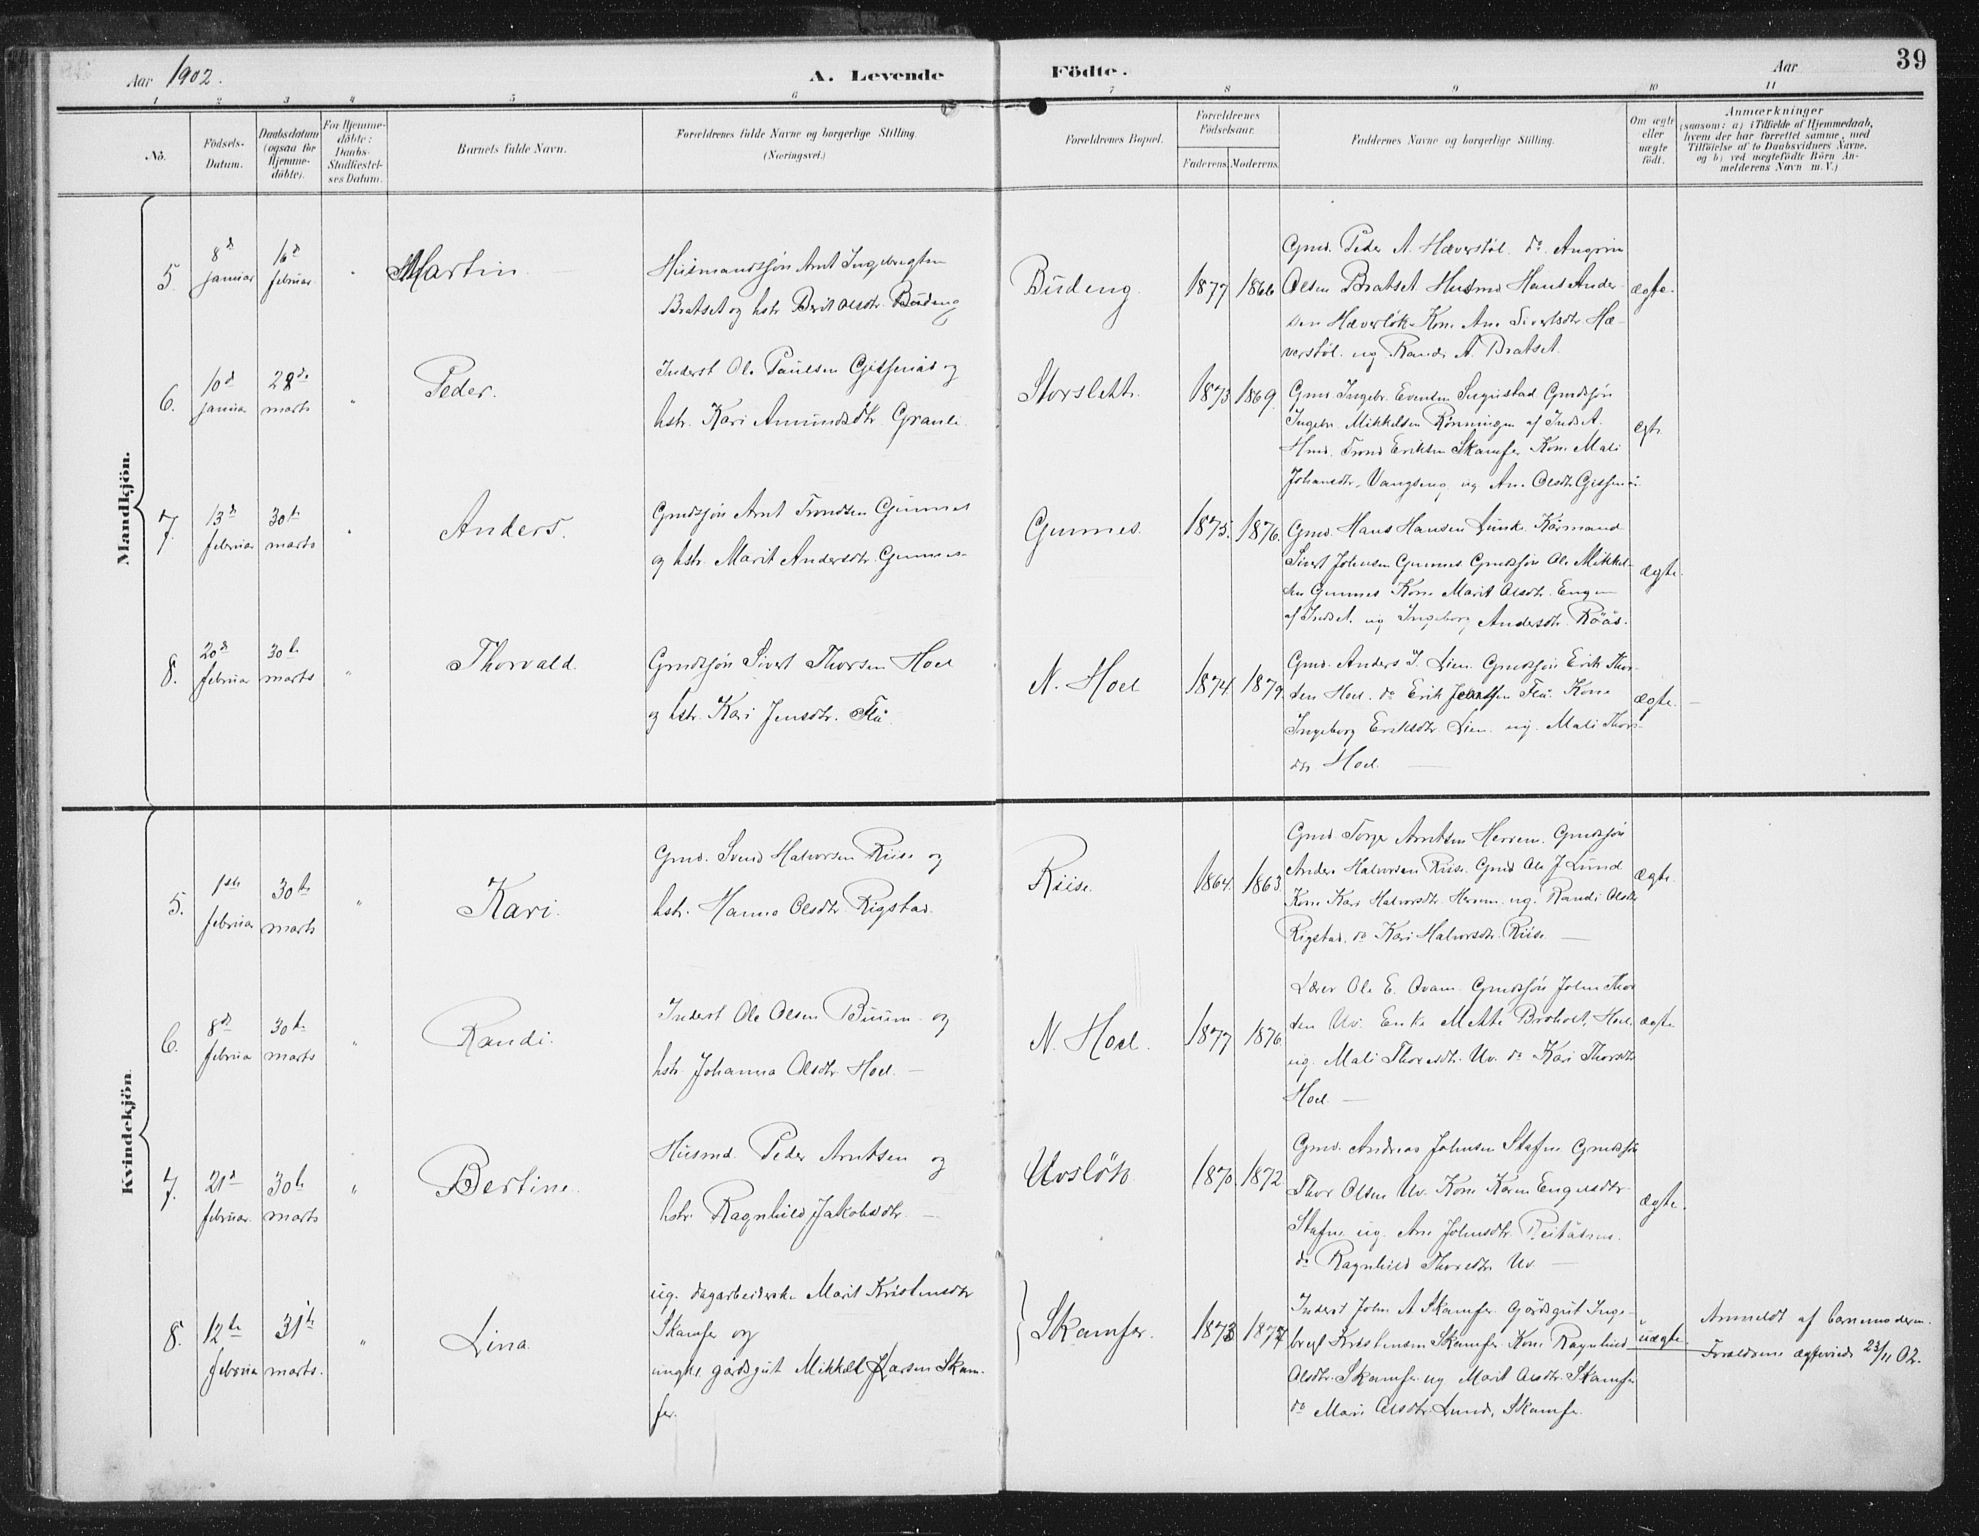 Aar 1902.
A. Levende Födte.
Aar
39
1 2 3 4 5 6 7 8 9 10 11
No.
Födsels-
Datum.
Daabsdatum
(ogsaa for
Hjemme-
döbte).
For Hjemme-
döbte:
Daabs-
Stadfæstel-
ses Datum.
Barnets fulde Navn.
Forældrenes fulde Navne og borgerlige Stilling.
(Næringsvei.)
Forældrenes Bopæl.
Forældrenes
Födselsaar.
Faderens. Moderens.
Faddernes Navne og borgerlige Stilling.
Om ægte
eller
uægte
født.
Anmærkninger
(saasom: a) i Tilfælde af Hjemmedaab,
hvem der har forrettet samme, med
Tilföielse af to Daabsvidners Navne,
og b) ved uægtefödte Börn An-
melderens Navn m. V.)
Mandkjön.
5.
8d
januar
16d
februar
"
Martin
Husmandssøn Arnt Ingebrigtsen
Bratset og hstr Berit Olsdtr. Büdeng
Büdeng.
1877 1866
Gmd. Peder A. Hæverstöl. do
Olsen Bratset Husmd Hans Ander-
sen Kone Ane Sivertsdtr Hæ-
verstöl. ug Randi A. Bratset.
ægte.
6.
10d
januar
28de
marts
"
Peder.
Inderst Ole Paulsen og
hstr. Kari Amundsdtr. Granli.
Storslett.
1873 1869.
Gmd. Ingebr. Evensen Gmdsön
Ingebr. Mikkelsen Rönningen af Indset.
Hmd. Trond Eriksen Skamfer Kone Mali
Johansdtr. Vangseng ug Ane Olsdtr
ægte
7.
13d
februar
30te
marts
"
Anders.
Gmdsjön Arnt Trondsen Gunnes
og hstr. Marit Andersdtr. Gunnes
Gunnes.
1875. 1876.
Gmd. Hans Hansen
Sivert Johnsen Gunnes Gmdsjön Ole Mikkel-
sen Gunnes Kone Marit Olsdtr. Engen
af Indset. ug Ingeborg Andersdtr. Röås.
ægte.
8.
20d
februar
30te
marts
"
Thorvald.
Gmdsjön Sivert Thorsen Hoel
og hstr. Kari Jensdtr. Flå.
N. Hoel
1874. 1879.
Gmd. Anders J. Lien. Gmdsjön Erik Thor-
sen Hoel. do Erik Flå. Kone
Ingeborg Eriksdtr. Lien. ug. Mali Thors-
dtr Hoel.
ægte.
Kvindekjön.
5.
1ste
februar
30te
marts
"
Kari.
Gmd. Svend Halvorsen Riise og
hstr. Hanna Olsdtr. Rigstad.
Riise.
1864. 1863.
Gmd Torge Arntsen Herrem. Gmdsjön
Anders Halvorsen Riise. Gmd Ole J Lund
Kone Kari Halvorsdtr. Herrem. ug. Randi Olsdtr
Rigstad. do Kari Halvorsdtr. Riise.
ægte.
6.
8d
februar
30te
marts
"
Randi.
Inderst Ole Olsen og
hstr. Johanna Olsdtr. Hoel.
N. Hoel.
1877 1876.
Lærer Ole E. Qvam. Gmdsjön John Thor
sen Uv. Enke Mette Hoel,
ug. Mali Thoresdtr. Uv. do Kari Thorsdtr
Hoel.
ægte
7.
21d
februar.
30te
marts
"
Bertine.
Husmd. Peder Arntsen og
hstr. Ragnhild Jakobsdtr.
Uvslök
1870. 1872
Gmd. Andreas Johnsen Stafne Gmdsjön
Thor Olsen Uv. Kone Karen Engelsdtr
Stafne ug. Ane Johnsdtr.
do Ragnhild Thoresdtr Uv.
ægte.
8.
12te
februar
31te
marts.
"
Lina.
ug. dagarbeiderske Marit Kristensdtr
Skamfer og
ungkr gårdsgut Mikkel Larsen Skam-
fer.
Skamfer.
1873 1877
Inderst John A Skamfer Gårdsgut Inge-
brigt Kristensen Skamfer Kone Ragnhild
Olsdtr. Skamfer ug Marit Olsdtr. Skamfer
do Mari Olsdtr. Lund, Skamfer.
uægte
Anmeldt af barnemoderen.
Foreldrene ægteviede 23/11 02.